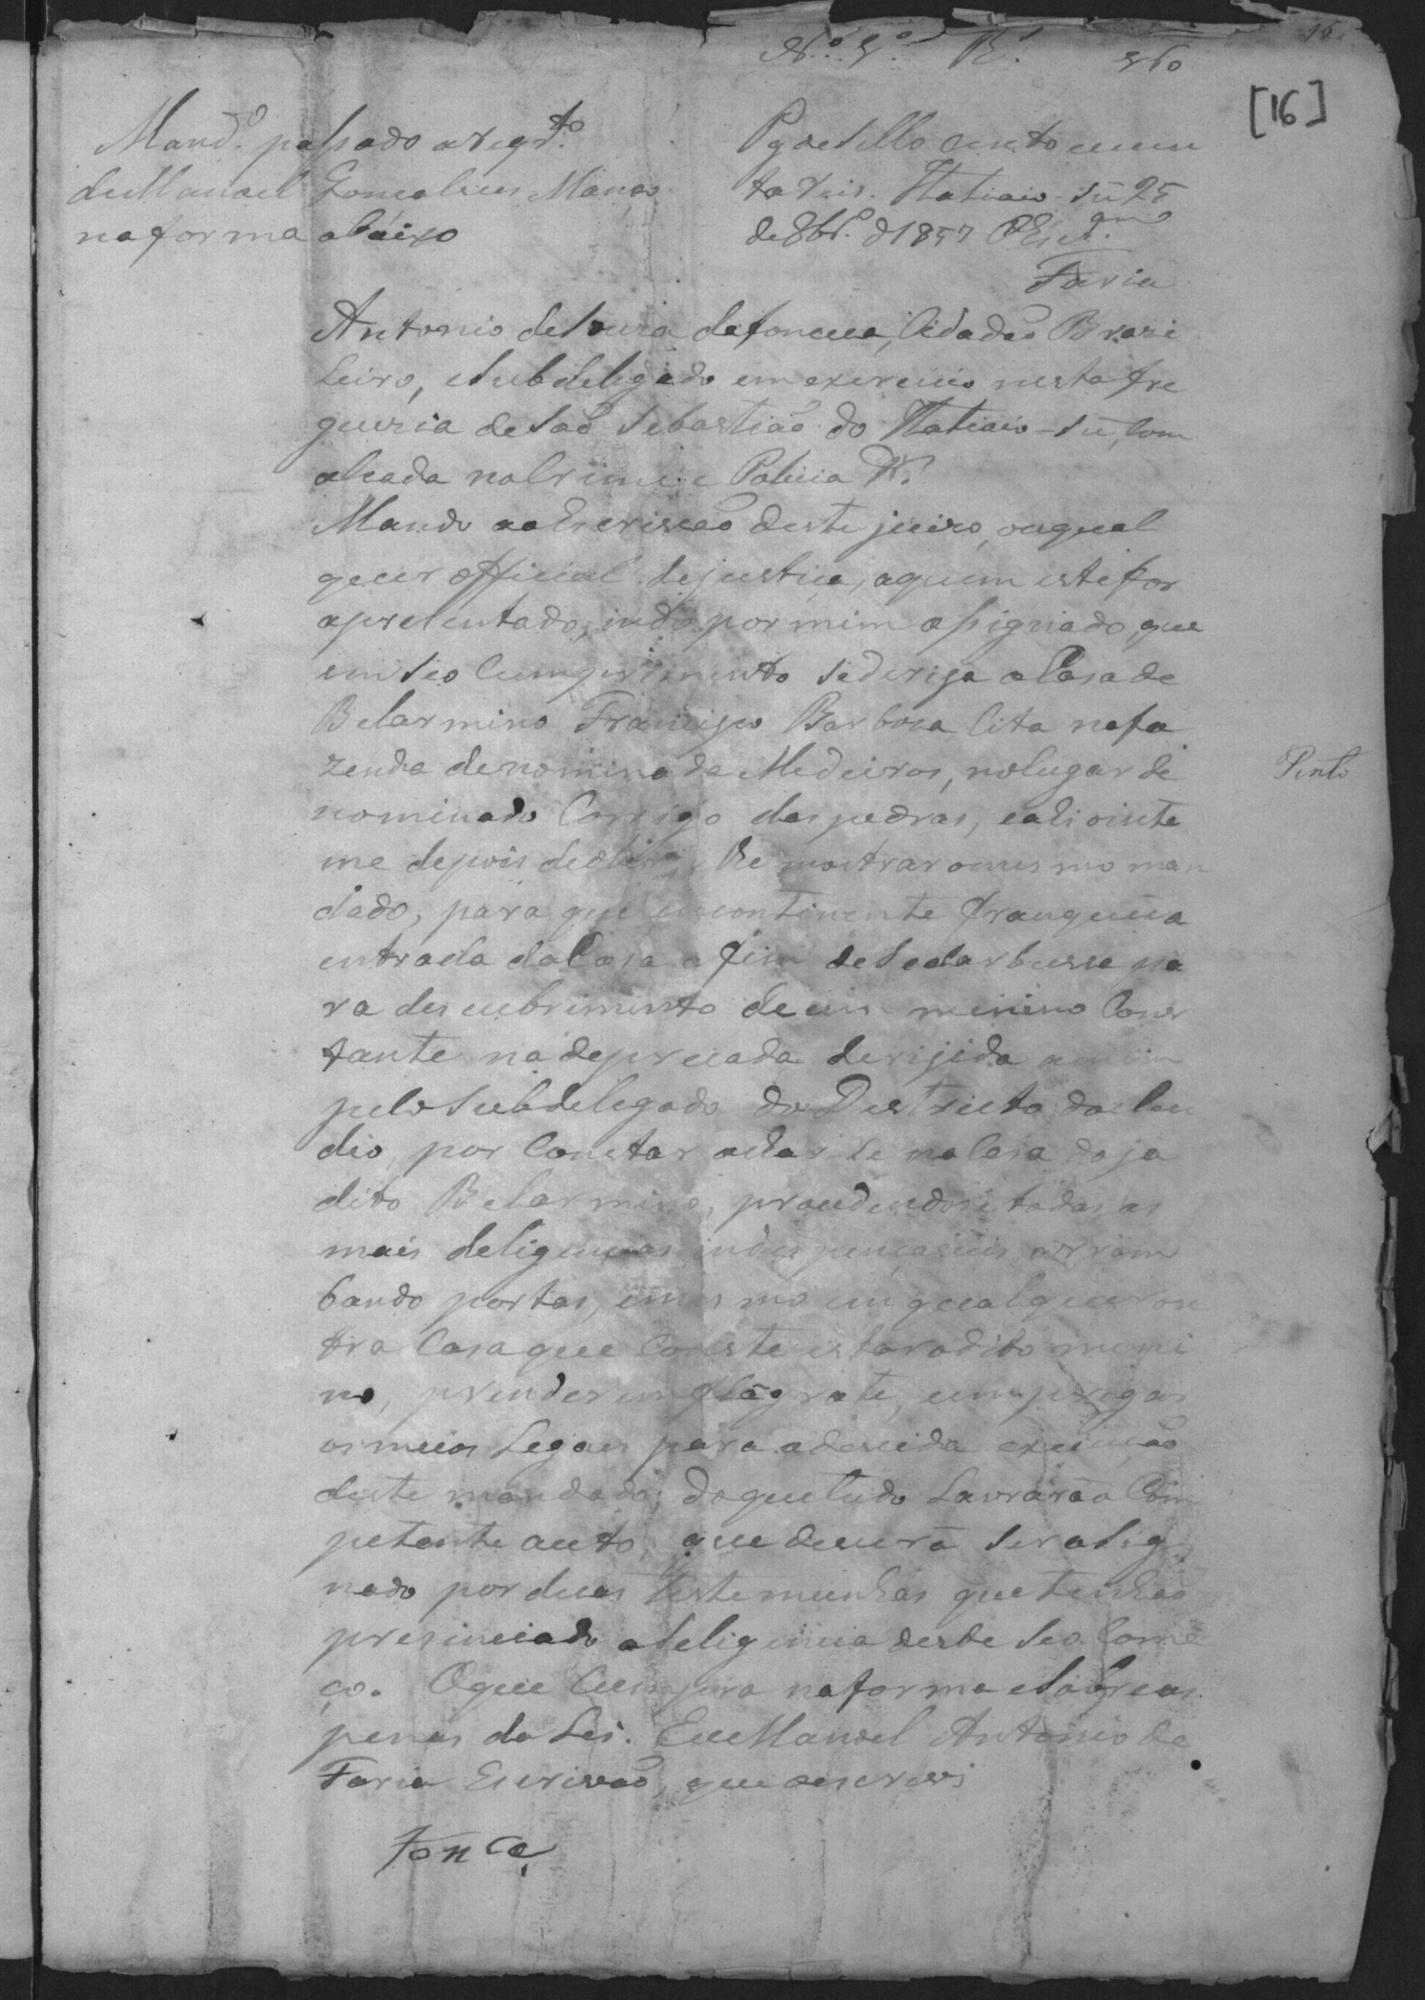 16
N.º 5.º R.s 160
[16]
Mand.º passado a reqr.to
de Manoel Gonçalves Manço
na forma abaixo
Pg de Sello cento e secen
ta reis. Itatiaio-sú 25
de 8br.º d 1857 O Escr.am
Faria
Antonio de Souza da Fonceca, Cidadão Brazi
leiro, e Subdelegado em exercicio nesta fre
guezia de São Sebastião do Itatiaio-sú, com
alçada no Crime e Policia &.
Mando ao Escrivão deste juizo, ou qual
quer official de justiça, a quem este for
apresentado, indo por mim assignado, que
em seo Cumprimento se deriga a Casa de
Belarmino Francisco Barbosa Cita na fa
zenda denominada Medeiros, no lugar de
nominado Corrigo das pedras, e ali o inte
me depois de lhe mostrar o mesmo man
dado, para que incontinente franqueia
entrada da Casa a fim de se dar busca pa
ra descubrimento de um menino Cons
tante na deprecada derijida a mim
pelo Subdelegado do Destricto do Clau
dio, por Constar achar se na Casa do ja
dito Belarmino, procedendose todas as
mais deligencias indespençaveis, arrom
bando portas, e mesmo em qualquer ou
tra Casa que Conste estar o dito meni
no, prender em flagrate, e empregar
os meios Legaes para a devida execução
deste mandado, do que tudo Lavrará o Com
petente auto, que deverá ser asig
nado por duas testemunhas que tenhão
presinciado a deligencia desde seo Come
ço. O que Cumpra na forma e Sob as
penas da Lei. Eu Manoel Antonio de
Faria Escrivão, que o escrevi
Fonca
Pinto